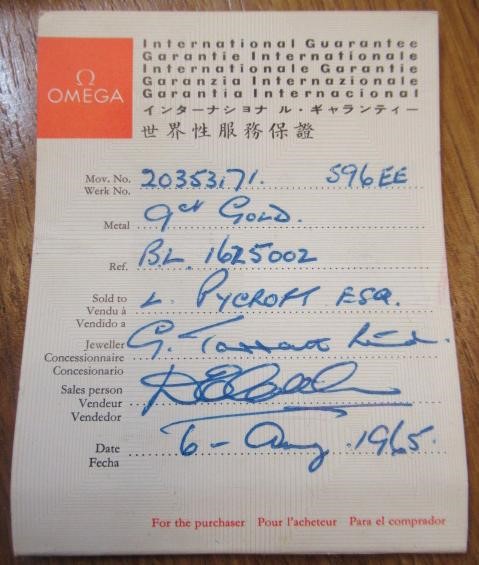 Ω
OMEGA
International Guarantee
Garantie Internationale
Internationale Garantie
Garanzia Internazionale
Garantia Internacional
インターナショナル・ギャランティー
世界性服務保證
Mov. No. 20353171. S96EE
Werk No.
Metal 9ct GOLD.
Ref. BL. 1625002
Sold to L. PYCROFT ESQ.
Vendu à
Vendido a
Jeweller G. Tarratt Ltd.
Concessionnaire
Concesionario
Sales person
Vendeur
Vendedor
Date 6 - Aug. 1965.
Fecha
For the purchaser Pour l'acheteur Para el comprador